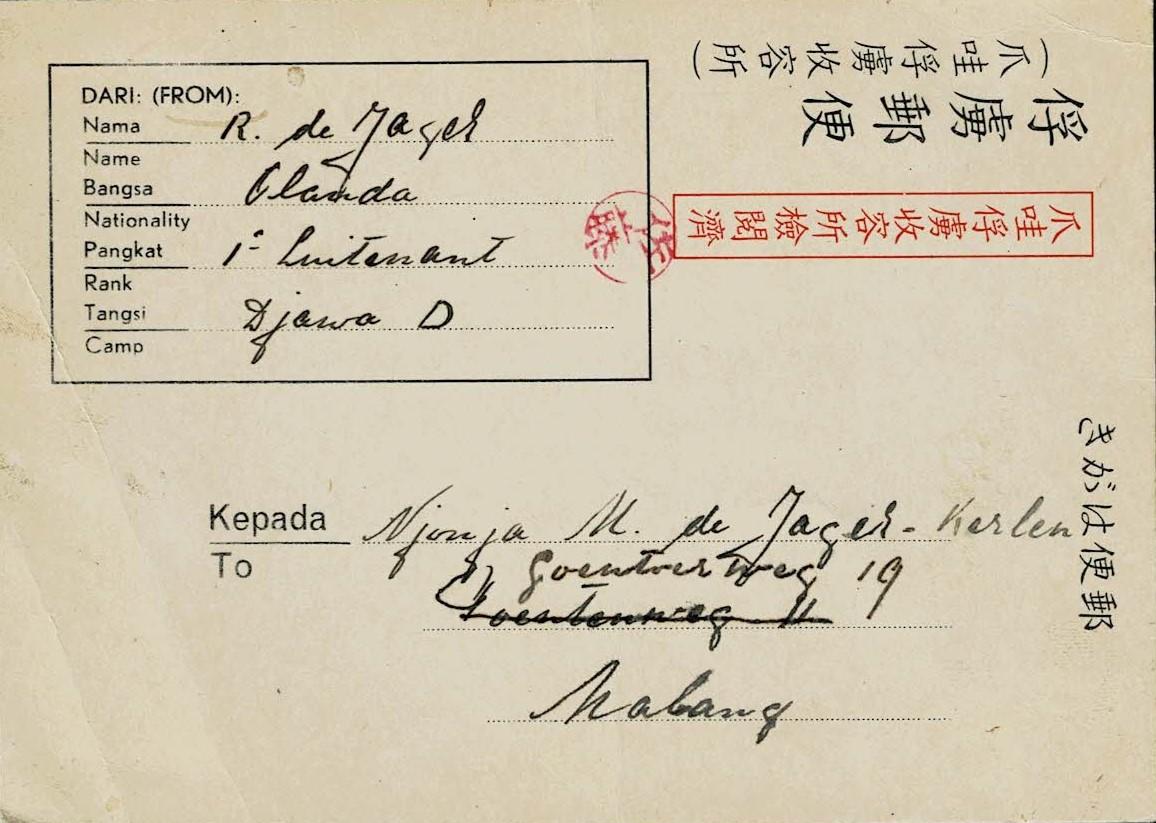 DARI: (FROM):
Nama R. de Jager
Name
Bangsa Olanda
Nationality
Pangkat 1e Luitenant
Rank
Tangsi Djawa D
Camp
(爪哇俘虜收容所)
俘虜郵便
爪哇俘虜收容所檢閱濟
郵便はがき
Kepada Njonja M. de Jager-Kerlen
To Goentoerweg 19
Malang